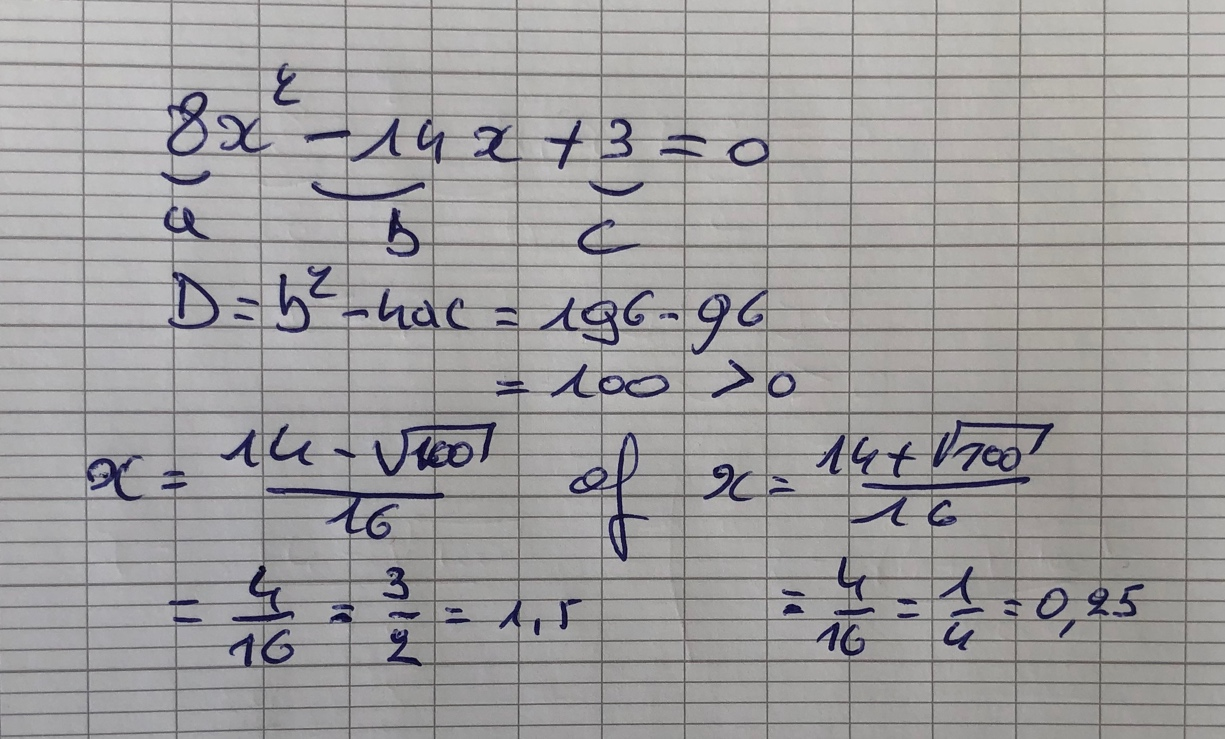 8x² - 14x + 3 = 0
a b c
D = b² - 4ac = 196 - 96
= 100 > 0
x = (14 - √100)/16 of x = (14 + √100)/16
= 4/16 = 3/2 = 1,5 = 4/16 = 1/4 = 0,25